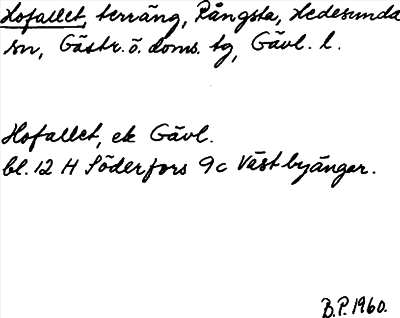 Hofallet, terräng, Rångsta, Hedesunda
sn, Gästr. ö. doms. tg, Gävl. l.
Hofallet, ek Gävl.
bl. 12 H Söderfors 9c Västbyängar.
B.P. 1960.